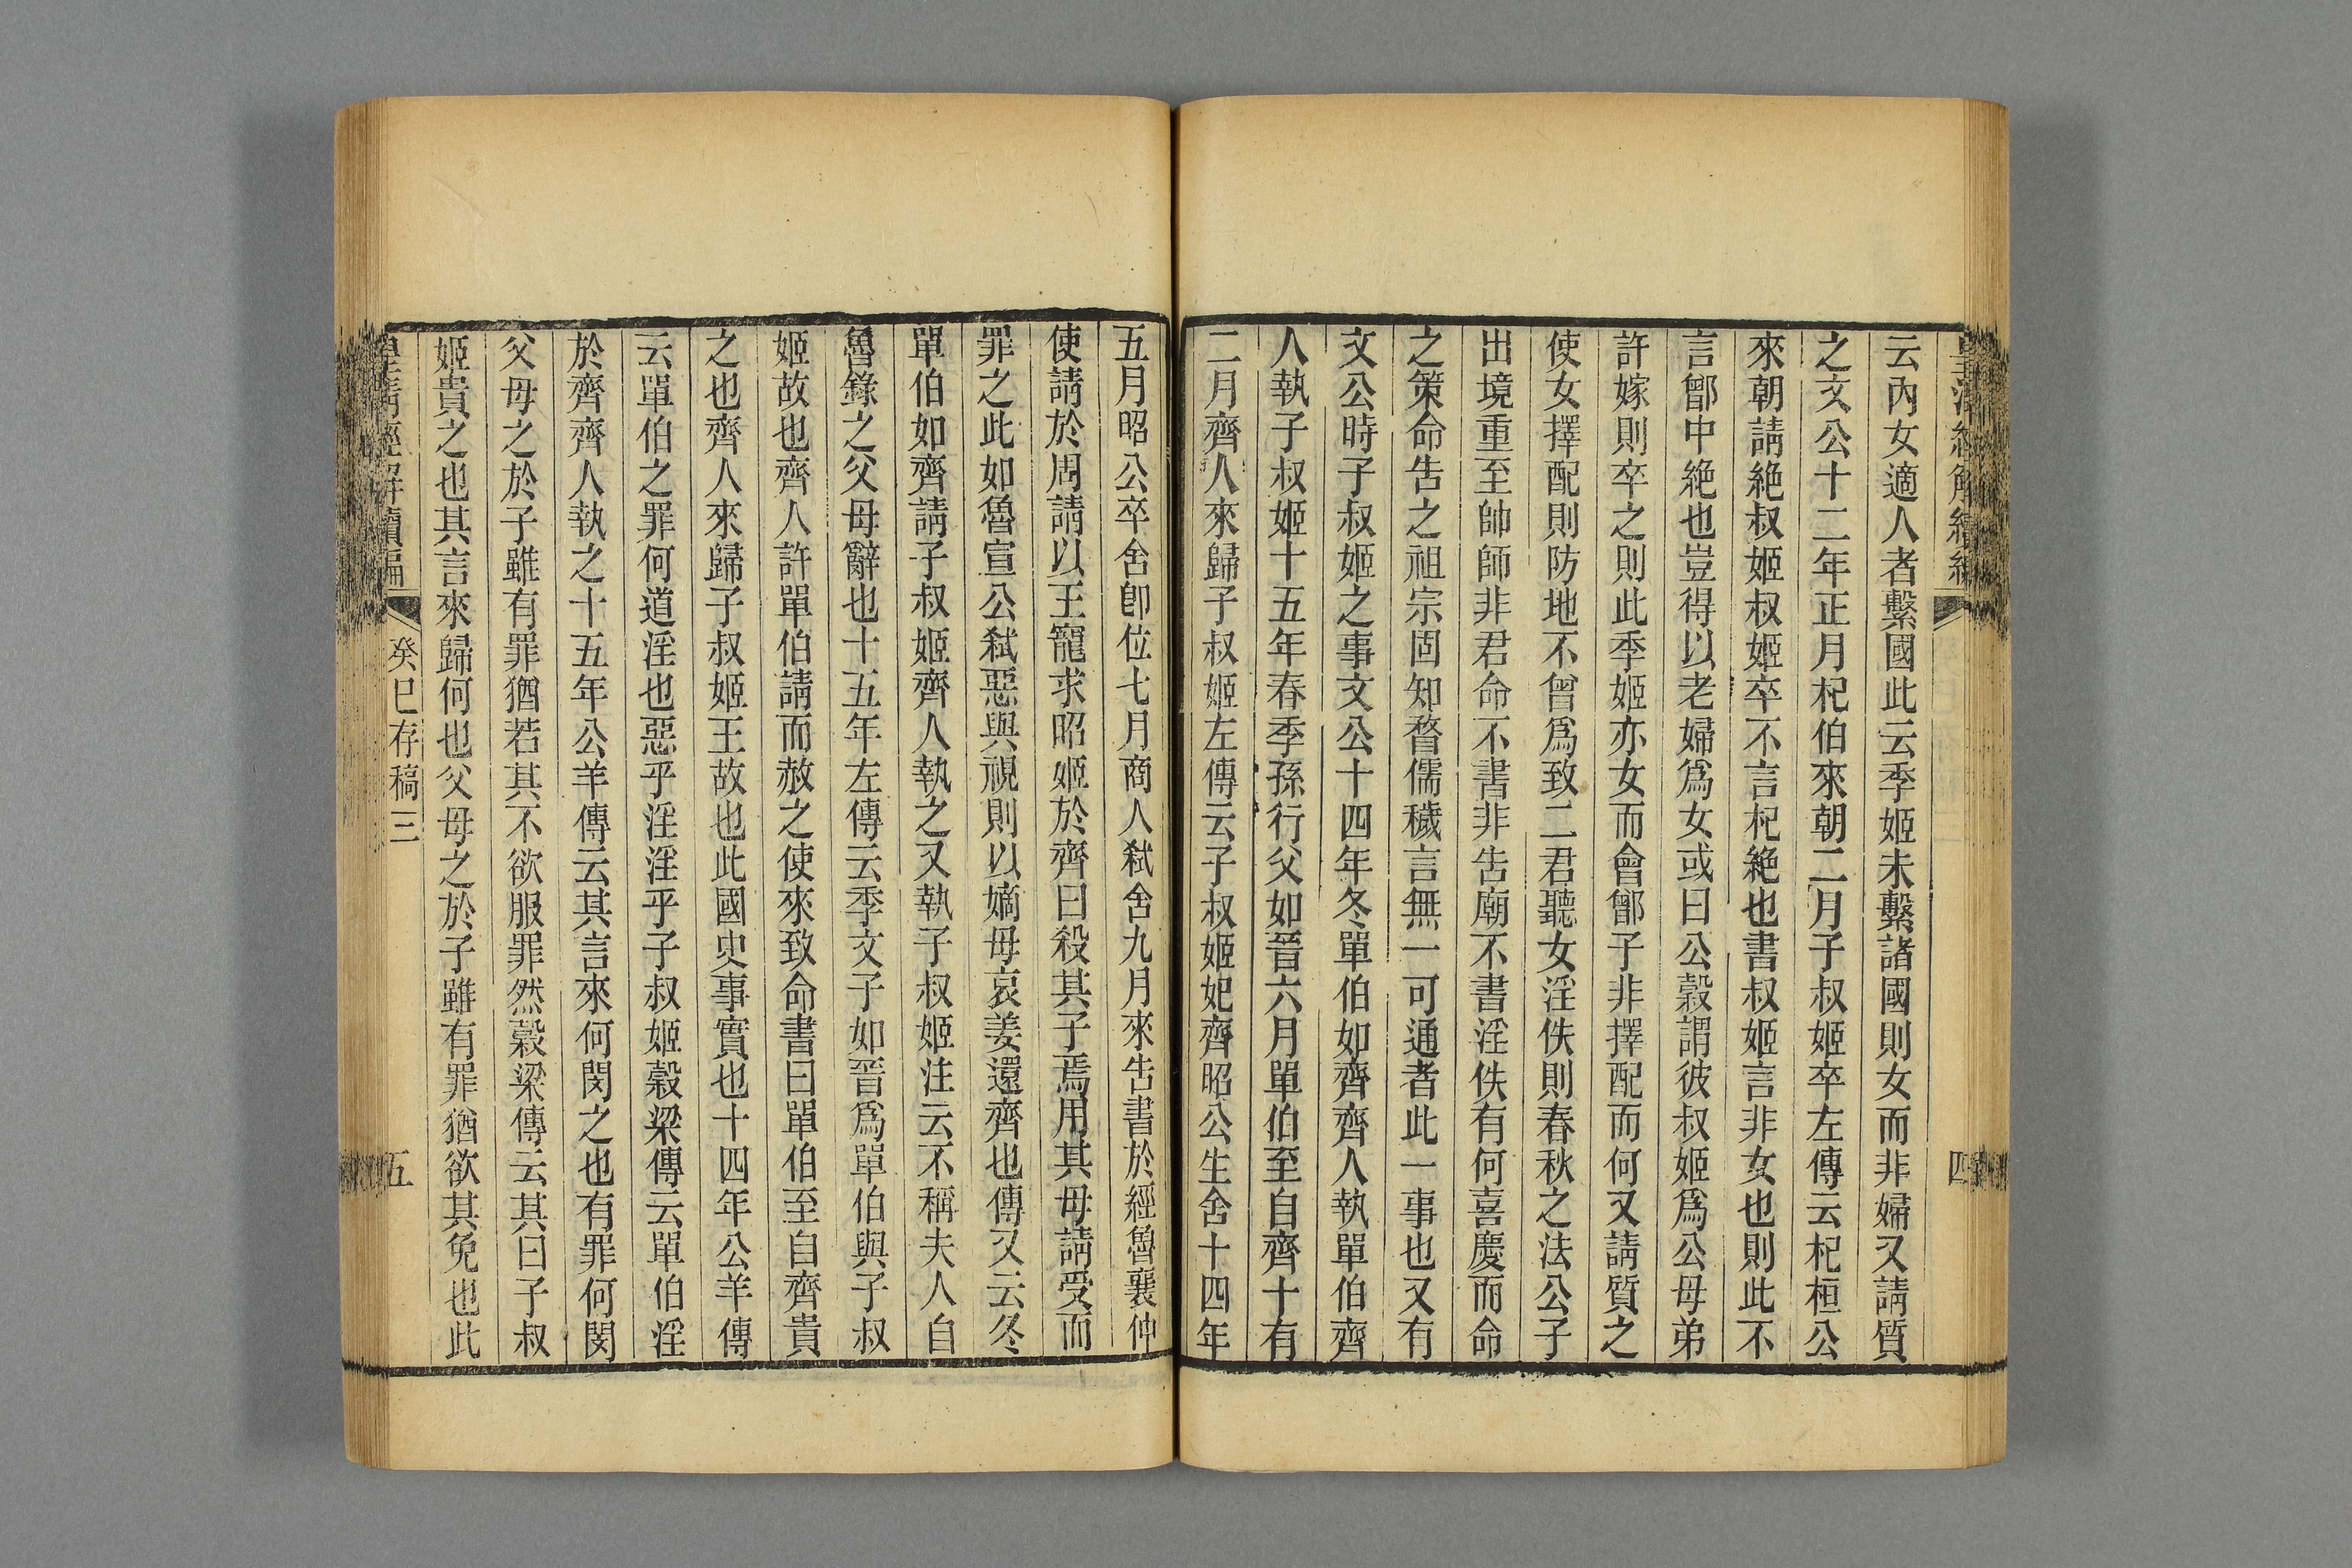 皇清經解續編
四
云內女適人者繫國此云季姬未繫諸國則女而非婦又請質
之文公十二年正月杞伯來朝二月子叔姬卒左傳云杞桓公
來朝請絶叔姬叔姬卒不言杞絶也書叔姬言非女也則此不
言鄫中絶也豈得以老婦爲女或曰公穀謂彼叔姬爲公母弟
許嫁則卒之則此季姬亦女而會鄫子非擇配而何又請質之
使女擇配則防地不曾爲致二君聽女淫佚則春秋之法公子
出境重至帥師非君命不書非告廟不書淫佚有何喜慶而命
之策命告之祖宗固知瞀儒穢言無一可通者此一事也又有
文公時子叔姬之事文公十四年冬單伯如齊齊人執單伯齊
人執子叔姬十五年春季孫行父如晉六月單伯至自齊十有
二月齊人來歸子叔姬左傳云子叔姬妃齊昭公生舍十四年
五月昭公卒舍卽位七月商人弒舍九月來告書於經魯襄仲
使請於周請以王寵求昭姬於齊曰殺其子焉用其母請受而
罪之此如魯宣公弒惡與視則以嫡母哀姜還齊也傳又云冬
單伯如齊請子叔姬齊人執之又執子叔姬注云不稱夫人自
魯錄之父母辭也十五年左傳云季文子如晉爲單伯與子叔
姬故也齊人許單伯請而赦之使來致命書曰單伯至自齊貴
之也齊人來歸子叔姬王故也此國史事實也十四年公羊傳
云單伯之罪何道淫也惡乎淫淫乎子叔姬穀梁傳云單伯淫
於齊齊人執之十五年公羊傳云其言來何閔之也有罪何閔
父母之於子雖有罪猶若其不欲服罪然穀梁傳云其曰子叔
姬貴之也其言來歸何也父母之於子雖有罪猶欲其免也此
皇清經解續編
癸巳存稿三
五